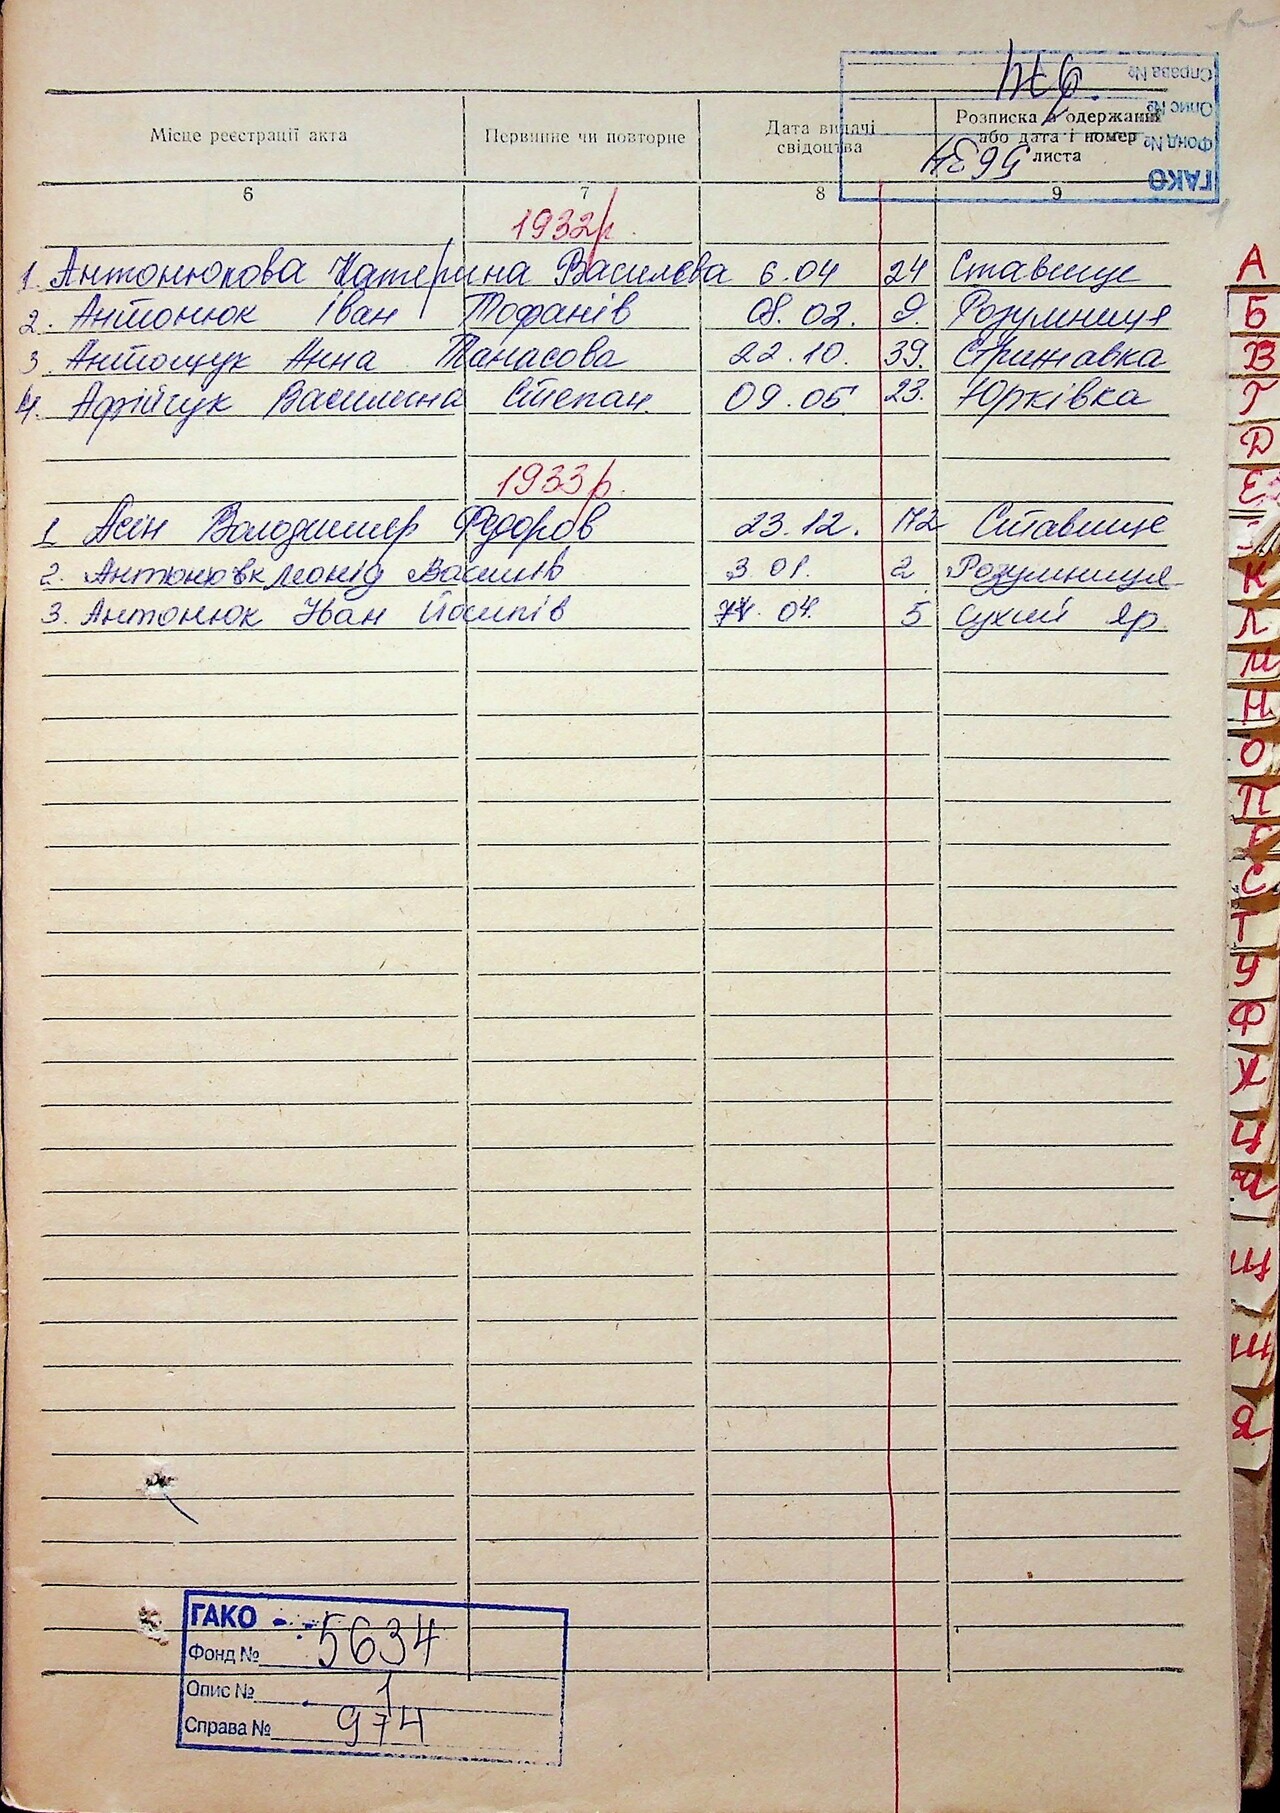 Справа № 974
Опис № 1
Фонд № 5634
ГАКО
Місце реєстрації акта Первинне чи повторне Дата видачі свідоцтва Розписка в одержанні або дата і номер листа
6 7 8 9
1932р.
1. Антонюкова Катерина Василєва 6.04 24 Ставище
2. Антонюк Іван Тофанів 08.02. 9. Розумниця
3 Антощук Анна Танасова 22.10. 39. Стрижавка
4. Афійчук Василина Степан. 09.05 23. Юрківка
1933р.
1 Асін Володимер Федоров 23.12. 172 Ставище
2. Антонювк Леонід Василів 3 01. 2 Розумниця
3. Антонюк Іван Йосипів 04. 5 Сухий Яр
А
Б
В
Г
Д
Е
К
Л
М
Н
О
П
Р
С
Т
У
Ф
Х
Ц
Ч
Щ
Ш
Я
ГАКО
Фонд № 5634
Опис № 1
Справа № 974